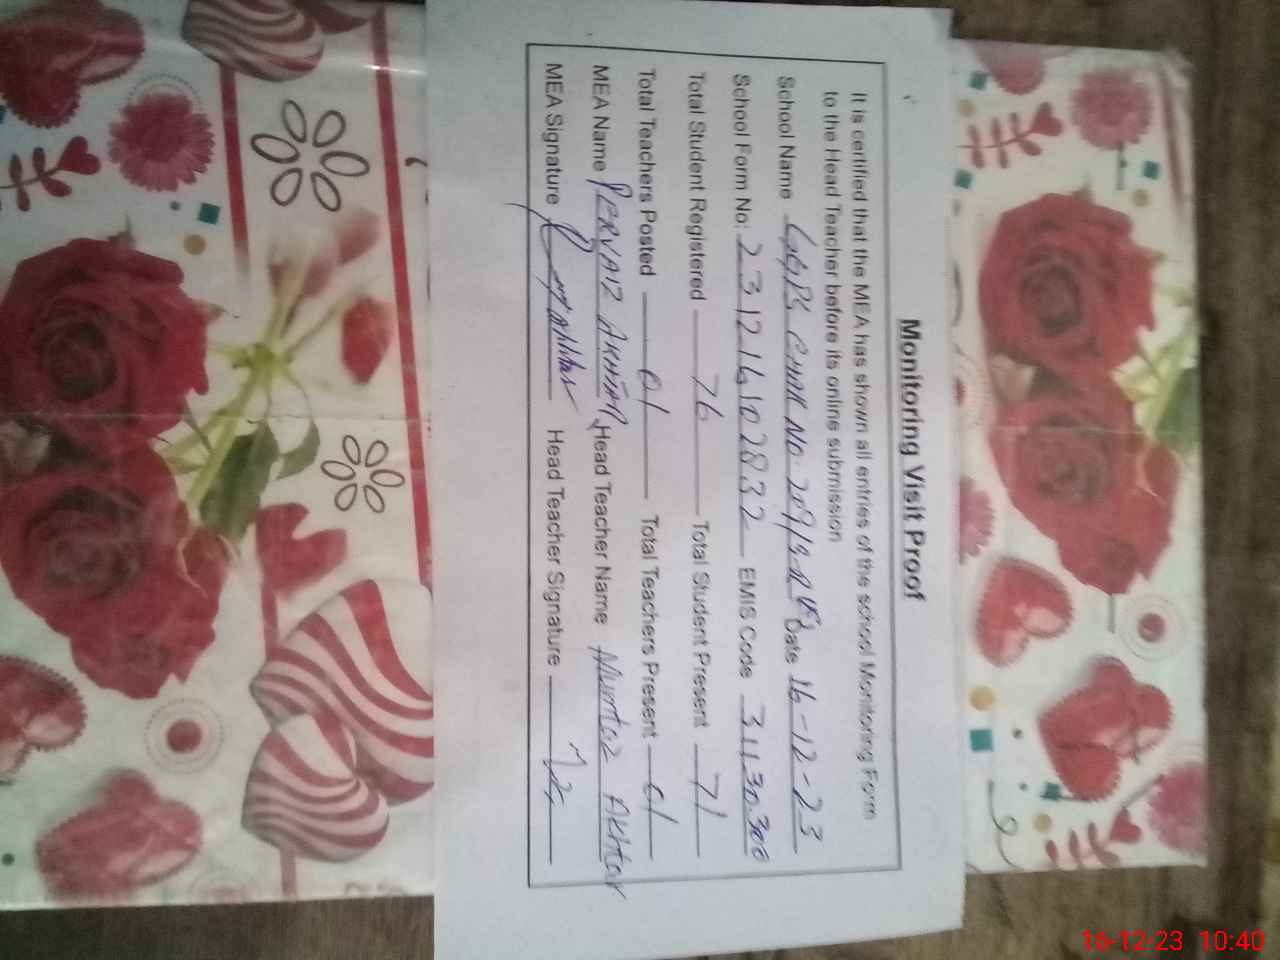 Monitoring Visit Proof
It is certified that the MEA has shown all entries of the school Monitoring Form
to the Head Teacher before its online submission
School Name GGPS CHAK NO. 209/9-R Date 16-12-23
School Form No: 231216102832 EMIS Code 31130300
Total Student Registered 76 Total Student Present 71
Total Teachers Posted 01 Total Teachers Present 01
MEA Name PERVAIZ AKHTAR Head Teacher Name Mumtaz Akhtar
MEA Signature Head Teacher Signature
16-12-23 10:40